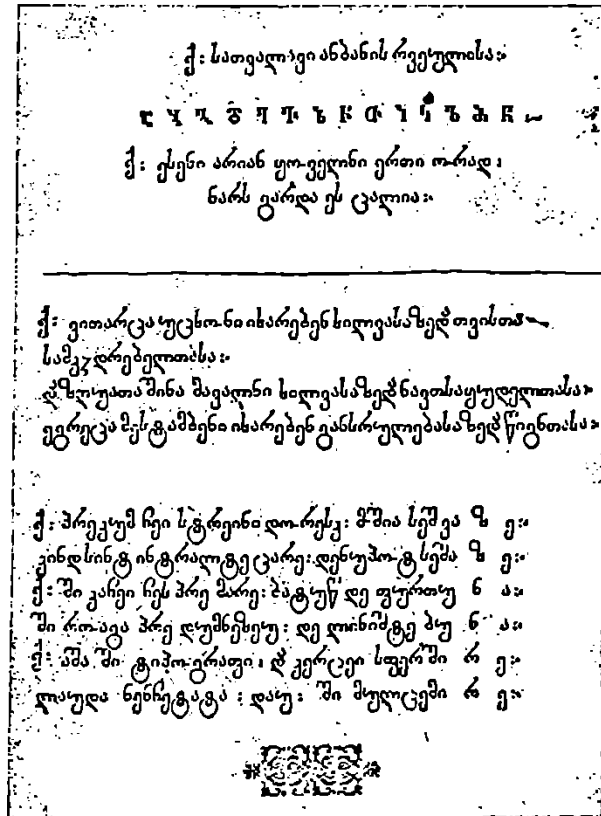 ქ: სათვალავი ანბანის რვეულისა:
ქ: ესენი არიან ყოველნი ერთი ორად:
ნარს გარდა ეს ცალია:
ქ: ვითარცა უცხონი იხარებენ ხილვასა ზედ თვისთა
სამკჳდრებელთასა:
დ ზღუათა შინა მავალნი ხილვასა ზედ ნავთსაყუდელთასა:
ეგრეცა მესტამბენი იხარებენ განსრულებასა ზედ წიგნთასა:
ქ: პრეკუმ ჩეი სტრეინი დორესკ: მშია სეშვა ზ ე:
კინდ სინტ ინტრალტე ცარე: დენუპოტ სეშა ზ ე:
ქ: ში კაჩეი ჩეს პრე მარე: ბატუწ დე ფურთუ ნ ა:
ში როაგა პრე დუმნეზეუ: დე ლინიშტე ბუ ნ ა:
ქ: აშა ში ტიპოგრაფი: დ კერცეი სფერში რ ე:
ლაუდა ნენჩეტატა: დაუ: ში მულცემი რ ე: